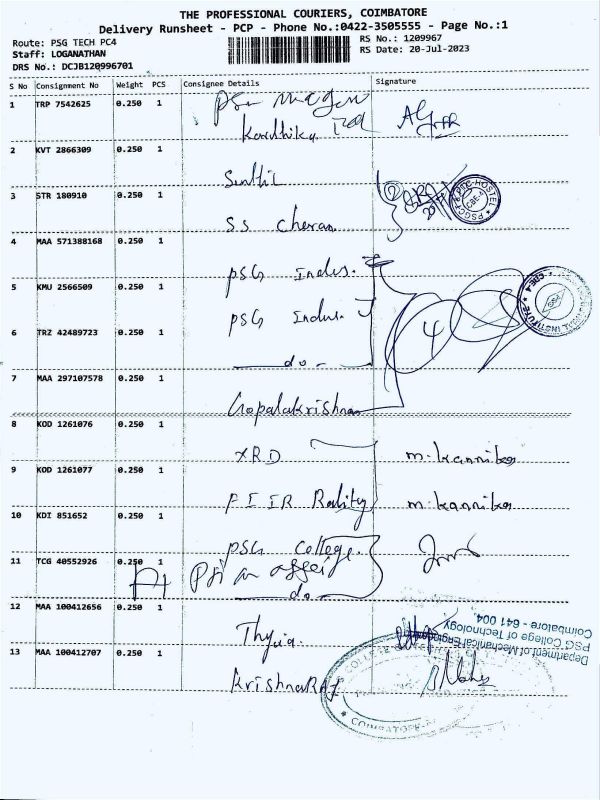 THE PROFESSIONAL COURIERS, COIMBATORE
Delivery Runsheet - PCP - Phone No.:0422-3505555 - Page No.:1
Route: PSG TECH PC4
RS No.: 1209967
Staff: LOGANATHAN
RS Date: 20-Jul-2023
DRS No.: DCJB120996701
S No Consignment No Weight PCS Consignee Details Signature
1 TRP 7542625 0.250 1
Karthika
2 KVT 2866309 0.250 1
Senthil
3 STR 180910 0.250 1
SS Cheran
4 MAA 571388168 0.250 1
PSG Indus.
5 KMU 2566509 0.250 1
PSG Indus.
6 TRZ 42489723 0.250 1
do
4
7 MAA 297107578 0.250 1
Gopalakrishnan
8 KOD 1261076 0.250 1
XRD m. kannika
9 KOD 1261077 0.250 1
m. kannika
10 KDI 851652 0.250 1
PSG College.
11 TCG 40552926 0.250 1
do
12 MAA 100412656 0.250 1
13 MAA 100412707 0.250 1
KrishnaRAJ
Department of Mechanical Engineering
PSG College of Technology
Coimbatore - 641 004